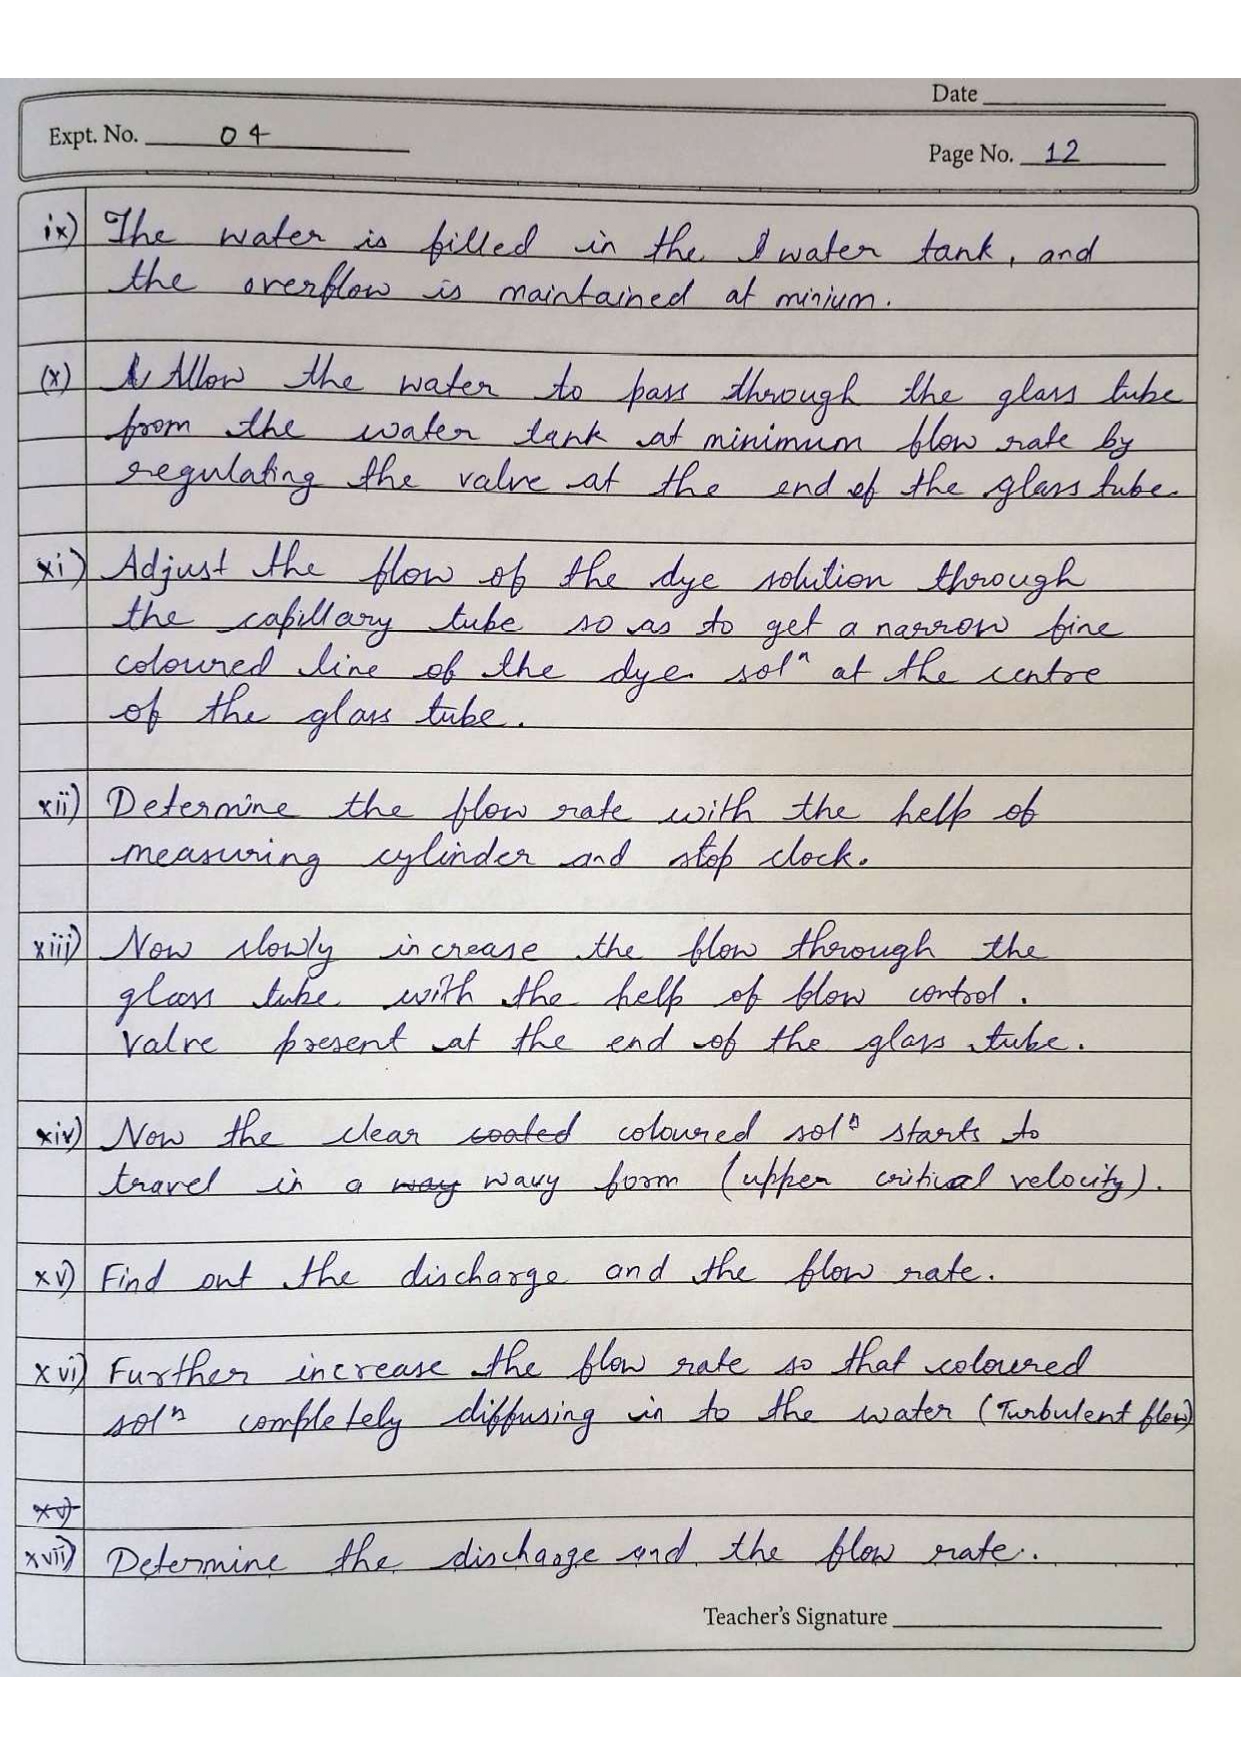 Date
Expt. No. 04
Page No. 12
ix) The water is filled in the water tank, and
the overflow is maintained at minium.
(x) Allow the water to pass through the glass tube
from the water tank at minimum flow rate by
regulating the valve at the end of the glass tube.
xi) Adjust the flow of the dye solution through
the capillary tube so as to get a narrow fine
coloured line of the dye solⁿ at the centre
of the glass tube.
xii) Determine the flow rate with the help of
measuring cylinder and stop clock.
xiii) Now slowly increase the flow through the
glass tube with the help of flow control.
valve present at the end of the glass tube.
xiv) Now the clear coated coloured solⁿ starts to
travel in a way wavy form (upper critical velocity).
xv) Find out the discharge and the flow rate.
xvi) Further increase the flow rate so that coloured
solⁿ completely diffusing in to the water (Turbulent flow)
xv)
xvii) Determine the discharge and the flow rate.
Teacher's Signature